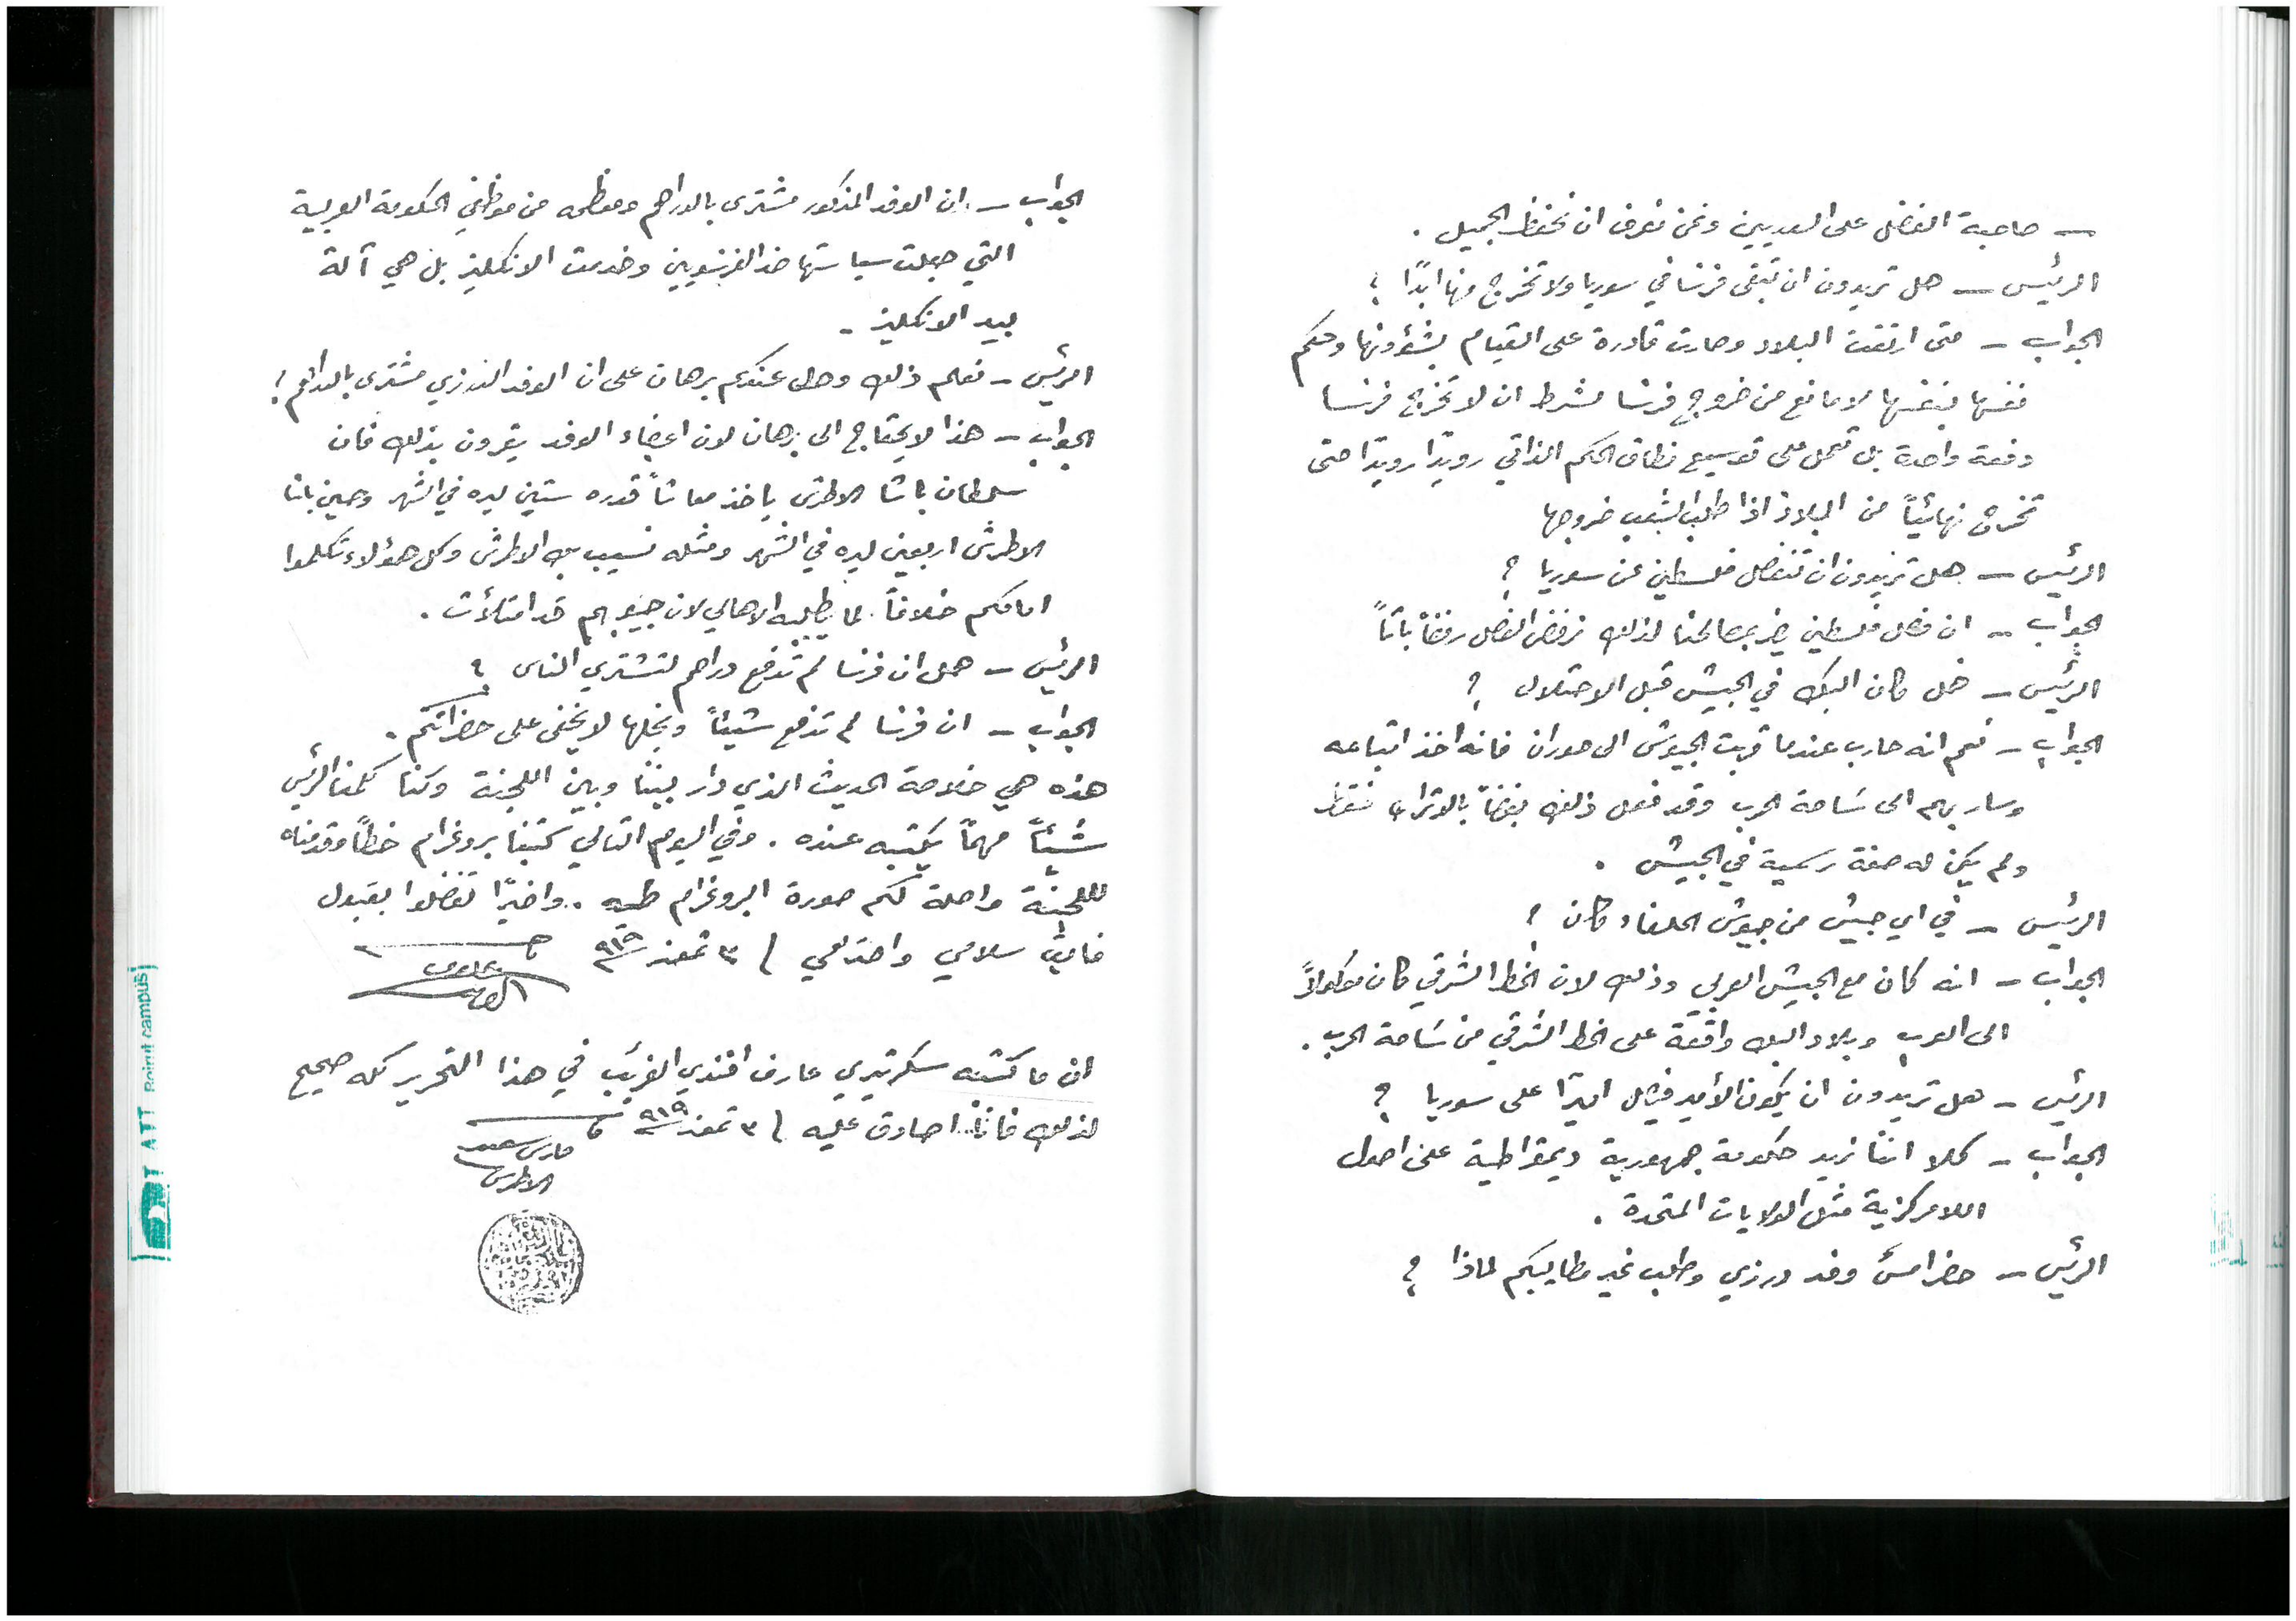 ـ صاحبة الفضل على السوريين ونحن نعرف ان نحفظ الجميل .
الرئيس ـ هل تريدون ان تبقى فرنسا في سوريا ولا تخرج منها ابدًا ؟
الجواب ـ متى ارتقت البلاد وصارت قادرة على القيام بشؤونها وحكم
نفسها بنفسها لا مانع من خروج فرنسا بشرط ان لا تخرج فرنسا
دفعة واحدة بل تعمل على توسيع نطاق الحكم الذاتي رويدًا رويدًا حتى
تخرج نهائيًا من البلاد اذا طلب الشعب خروجها
الرئيس ـ هل تريدون ان تنفصل فلسطين عن سوريا ؟
الجواب ـ ان فصل فلسطين يضر بمصالحنا لذلك نرفض الفصل رفضاً باتاً
الرئيس ـ هل كان البك في الجيش قبل الاحتلال ؟
الجواب ـ نعم انه حارب عندما قربت الجيوش الى حوران فانه اخذ اتباعه
وسار بهم الى ساحة الحرب وقد فعل ذلك بغضاً بالاتراك فقط
ولم يكن له صفة رسمية في الجيش .
الرئيس ـ في اي جيش من جيوش الحلفاء كان ؟
الجواب ـ انه كان مع الجيش العربي وذلك لان الخط الشرقي كان موكولاً
الى العرب وبلاد البك واقعة على الخط الشرقي من ساحة الحرب .
الرئيس ـ هل تريدون ان يكون الأمير فيصل اميرًا على سوريا ؟
الجواب ـ كلا اننا نريد حكومة جمهورية ديمقراطية على اصول
اللامركزية مثل الولايات المتحدة .
الرئيس ـ حضر امس وفد درزي وطلب غير مطاليبكم لماذا ؟
الجواب ـ ان الوفد المذكور مشترى بالدراهم ومعظمه من موظفي الحكومة العربية
التي جعلت سياستها ضد الفرنسويين وخدمت الانكليز بل هي آلة
بيد الانكليز .
الرئيس ـ نعلم ذلك وهل عندكم برهان على ان الوفد الدرزي مشترى بالدراهم ؟
الجواب ـ هذا لا يحتاج الى برهان لان اعضاء الوفد يقرون بذلك فان
سلطان باشا الاطرش ياخذ معاشاً قدره ستين ليره في الشهر وحسين باشا
الاطرش اربعين ليره في الشهر ومثله نسيب بك الاطرش وكل هؤلاء تكلموا
امامكم خلافاً لما يطلبه الاهالي لان جيوبهم قد امتلأت .
الرئيس ـ هل ان فرنسا لم تدفع دراهم لتشتري الناس ؟
الجواب ـ ان فرنسا لم تدفع شيئاً وبخلها لا يخفى على حضراتكم .
هذه هي خلاصة الحديث الذي دار بيننا وبين اللجنة وكنا كلمنا الرئيس
شيئاً مهماً يكتبه عنده . وفي اليوم التالي كتبنا بروغرام خطاً وقدمناه
للجنة واصلة لكم صورة البروغرام طيه . واخيرًا تفضلوا بقبول
فايق سلامي واحترامي / ٣ تموز ٩١٩
ان ما كتبه سكرتيري عارف افندي الغريب في هذا التحرير كله صحيح
لذلك فانا اصادق عليه / ٣ تموز ٩١٩
فارس سعيد
الاطرش
Beirut campus